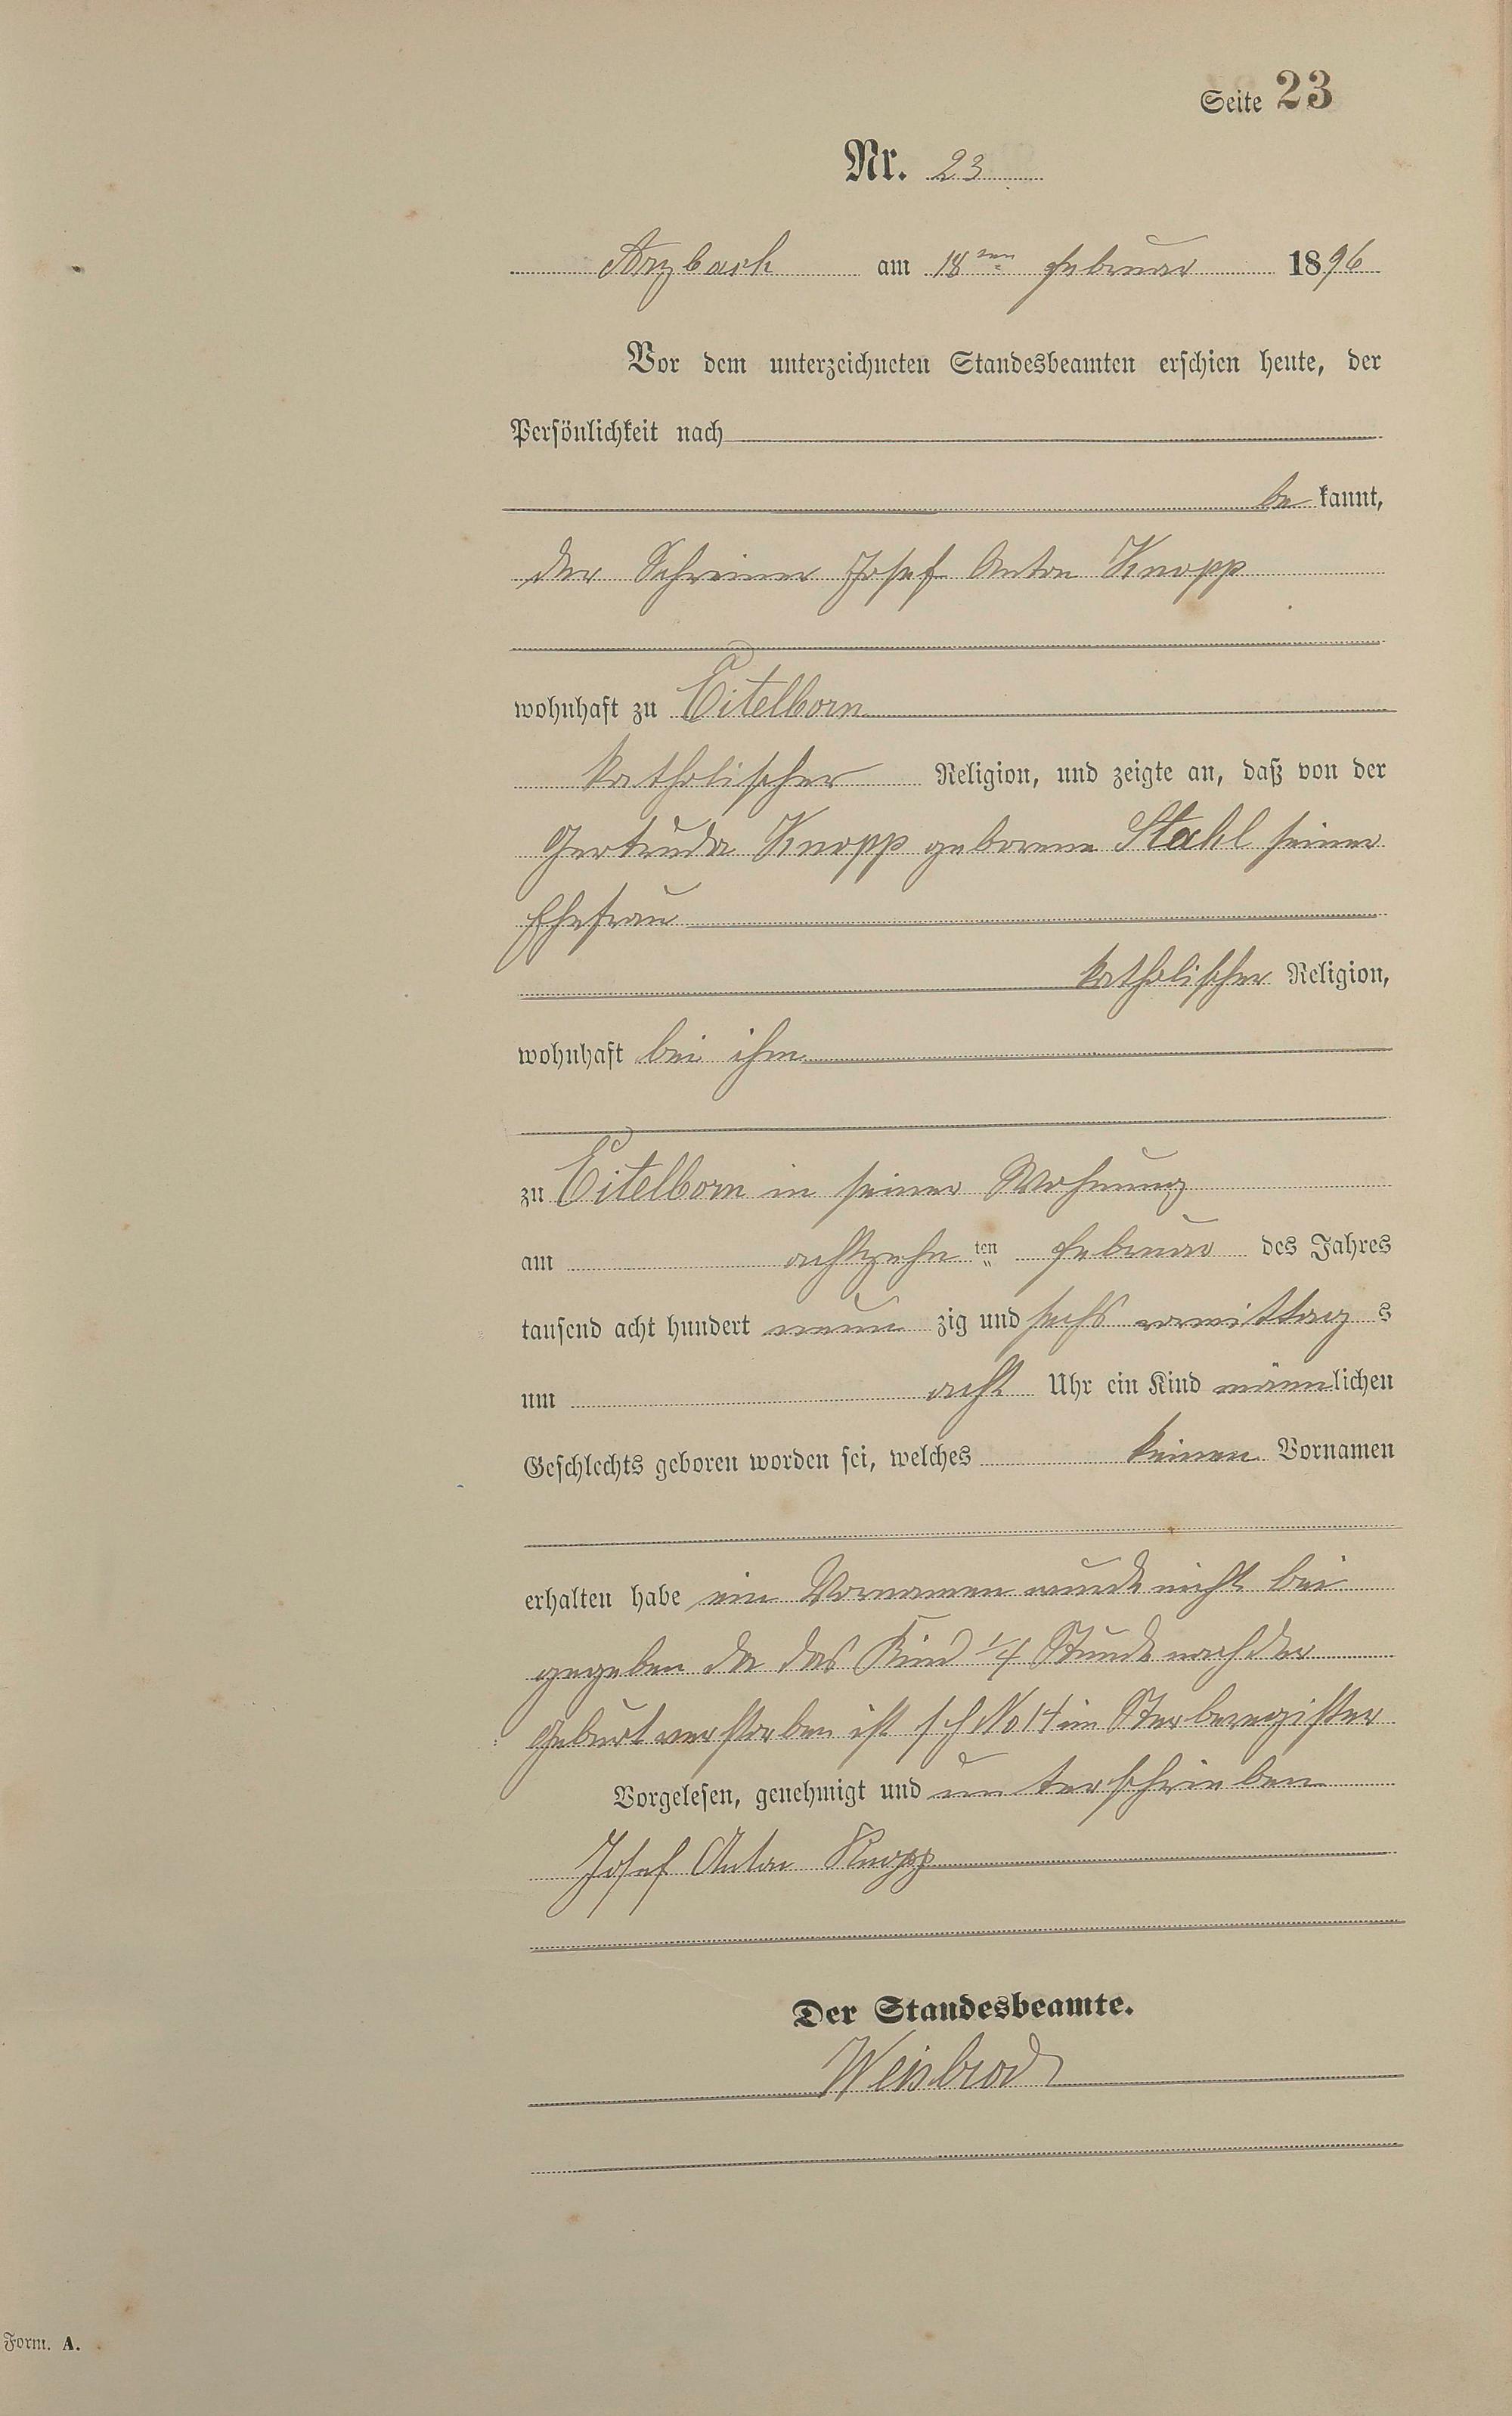 Seite 23
Nr. 23
Arzbach am 18ten Februar 1896
Vor dem unterzeichneten Standesbeamten erschien heute, der
Persönlichkeit nach
be kannt,
der Schreiner Josef Anton Knopp
wohnhaft zu Eitelborn
katholischer Religion, und zeigte an, daß von der
Gertruda Knopp geborene Stahl seiner
Ehefrau
katholischer Religion,
wohnhaft bei ihm
zu Eitelborn in seiner Wohnung
am achtzehn ten Februar des Jahres
tausend acht hundert neun zig und sechs vormittag s
um acht Uhr ein Kind männlichen
Geschlechts geboren worden sei, welches keinen Vornamen
erhalten habe ein Vornamen wurde nicht bei
gegeben da das Kind 1/4 Stunde nach der
Geburt verstorben ist s f No 14 im Sterberegister
Vorgelesen, genehmigt und unterschrieben
Josef Anton Knopp
Der Standesbeamte.
Weisbrod
Form. A.